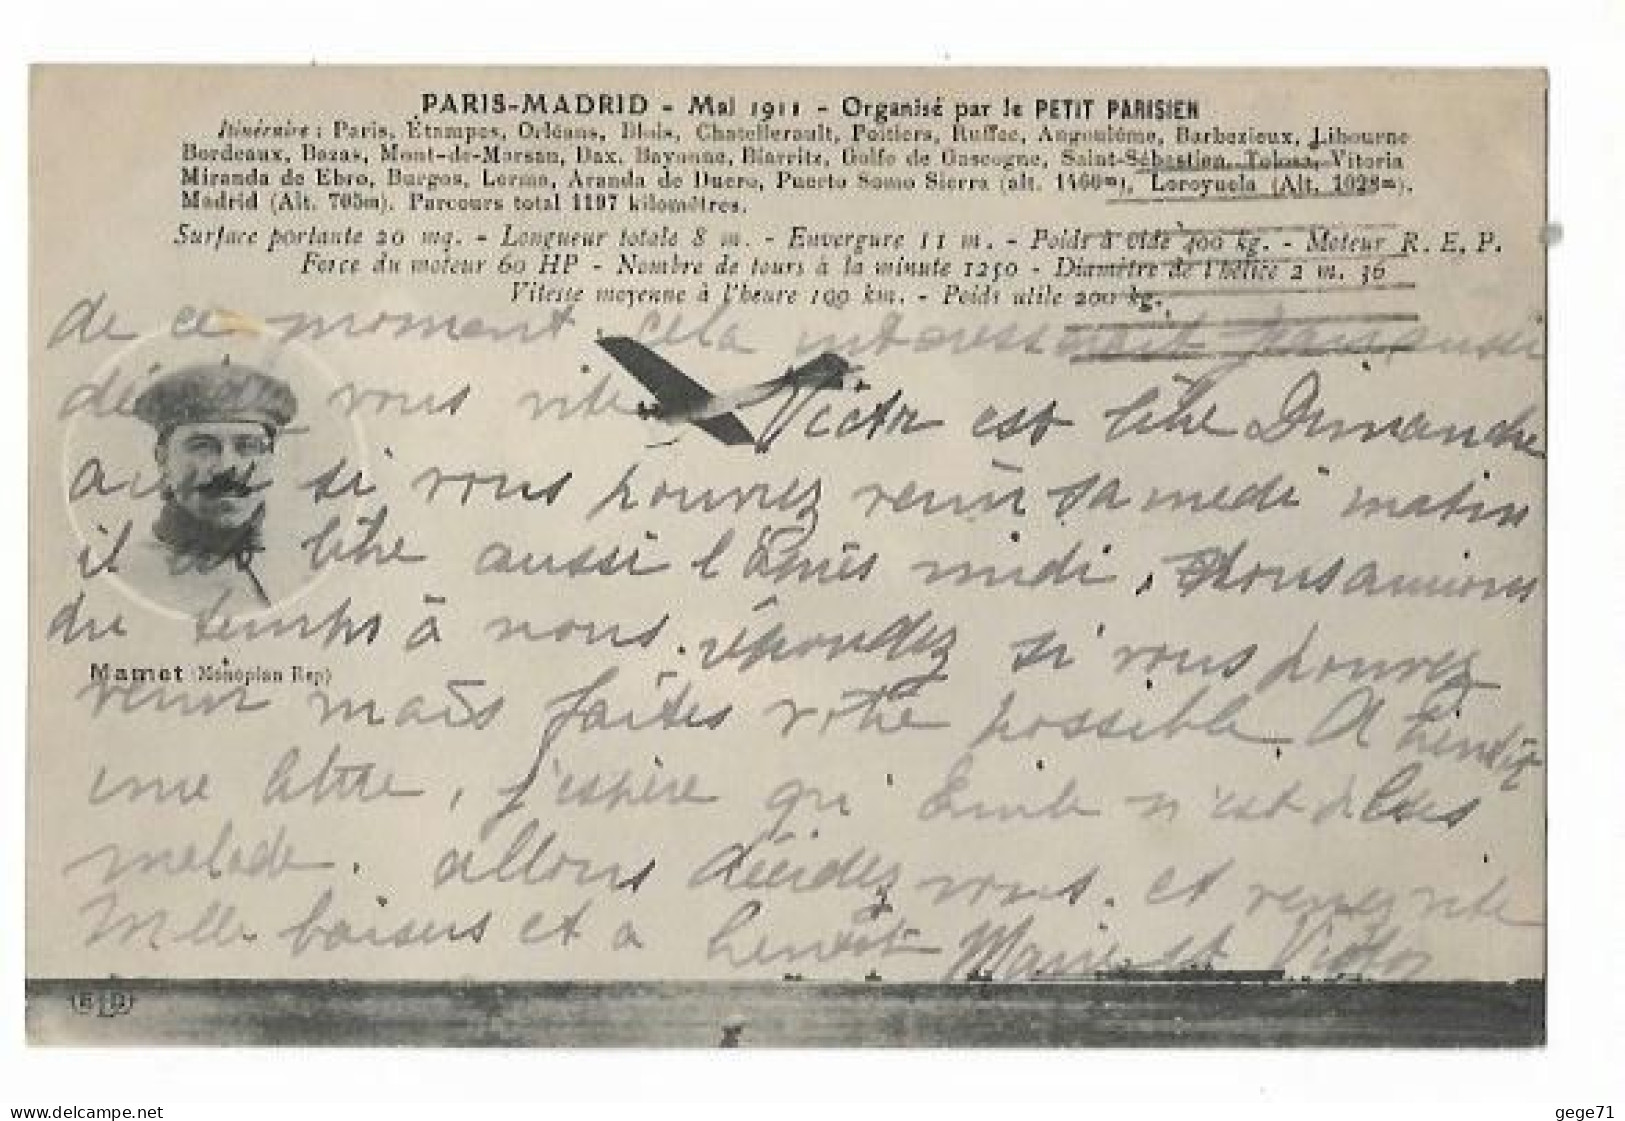 PARIS-MADRID - Mai 1911 - Organisé par le PETIT PARISIEN
Itinéraire : Paris, Étampes, Orléans, Blois, Chatellerault, Poitiers, Ruffec, Angoulême, Barbezieux, Libourne
Bordeaux, Bazas, Mont-de-Marsan, Dax, Bayonne, Biarritz, Golfe de Gascogne, Saint-Sébastien, Tolosa, Vitoria
Miranda de Ebro, Burgos, Lerma, Aranda de Duero, Puerto Somo Sierra (alt. 1460m), Loroyuela (Alt. 1028m).
Madrid (Alt. 705m). Parcours total 1197 kilomètres.
Surface portante 20 mq. - Longueur totale 8 m. - Envergure 11 m. - Poids à vide 400 kg. - Moteur R. E. P.
Force du moteur 60 HP - Nombre de tours à la minute 1250 - Diamètre de l'hélice 2 m. 36
Vitesse moyenne à l'heure 109 km. - Poids utile 200 kg.
de ce moment cela interesserait aussi
vous vite Victor est libre Dimanche
aussi si vous pouvez venir samedi matin
il est libre aussi l'après midi, nous aurions
du temps à nous. répondez si vous pouvez
Mamet (Monoplan Rep)
venir mais faites votre possible. A bientôt
une lettre, j'espère qu'Emile n'est plus
malade. allons décidez vous. et venez vite
Mille baisers et a bientôt Marie et Victor
ELD
www.delcampe.net
gege71